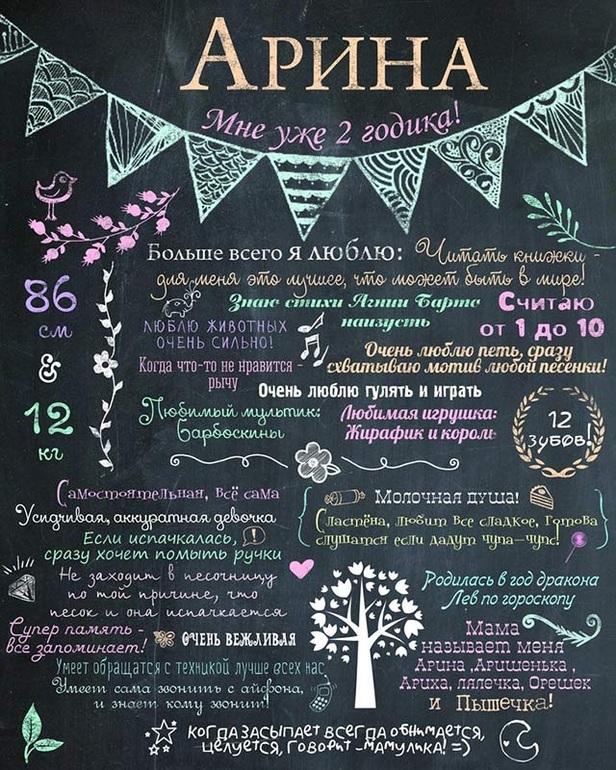 Арина
Мне уже 2 годика!
Больше всего я люблю: Читать книжки -
для меня это лучшее, что может быть в мире!
86
см
&
12
кг
Знаю стихи Агнии Барто
наизусть
Считаю
от 1 до 10
люблю животных
очень сильно!
Очень люблю петь, сразу
схватываю мотив любой песенки!
Когда что-то не нравится -
рычу
Очень люблю гулять и играть
Любимый мультик:
Барбоскины
Любимая игрушка:
Жирафик и король
12
зубов!
Самостоятельная, всё сама
Усидчивая, аккуратная девочка
Если испачкалась,
сразу хочет помыть ручки
Не заходит в песочницу
по той причине, что
песок и она испачкается
Супер память -
все запоминает!
очень вежливая
Умеет обращатся с техникой лучше всех нас
Умеет сама звонить с айфона,
и знает кому звонит!
Молочная душа!
Сластёна, любит все сладкое, готова
слушатся если дадут чупа-чупс!
Родилась в год дракона
Лев по гороскопу
Мама
называет меня
Арина ,Аришенька ,
Ариха, лялечка, Орешек
и Пышечка!
когда засыпает всегда обнимается,
целуется, говорит -мамулика! =)